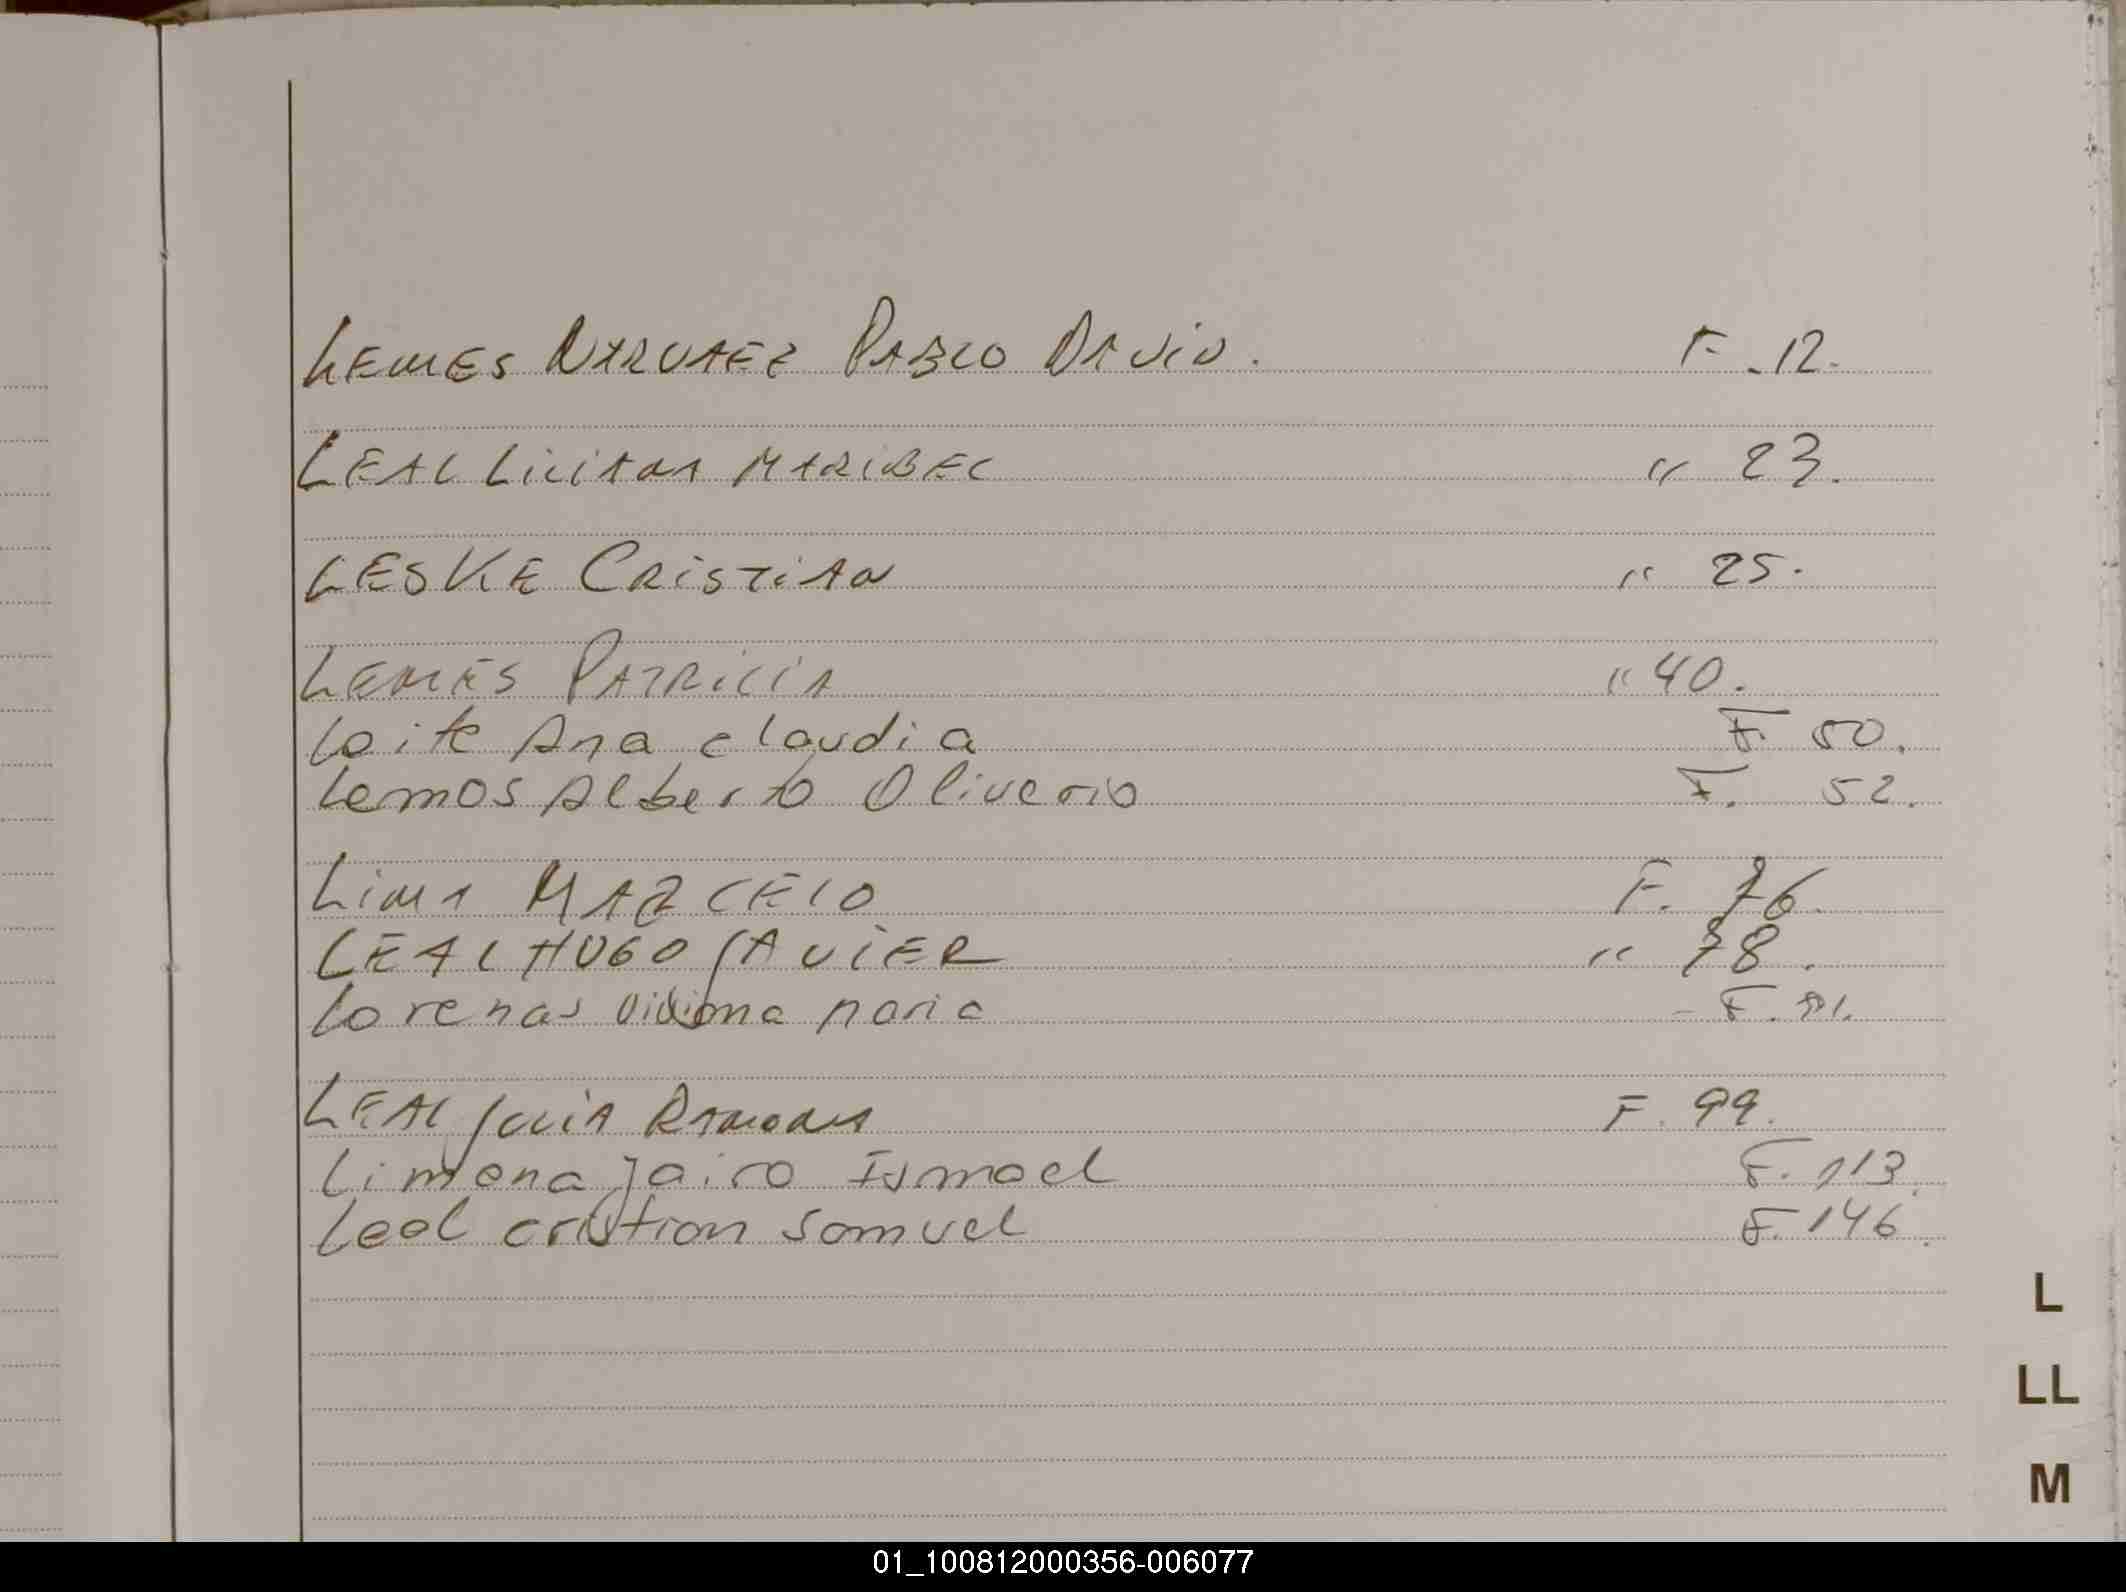 LEMES NARVAEZ PABLO DAVID. F. 12.
LEAL LILIANA MARIBEL " 23.
LESKE CRISTIAN " 25.
LEMES PATRICIA " 40.
Leite Ana claudia F. 50.
Lemos Alberto Oliverio F. 52.
LIMA MARCELO F. 76.
LEAL HUGO JAVIER " 78.
Lorenas Viviana maria F. 81.
LEAL JULIA RAMONA F. 99.
Limena Jairo Ismael F. 113.
Leal cristian Samuel F. 146.
L
LL
M
01_100812000356-006077